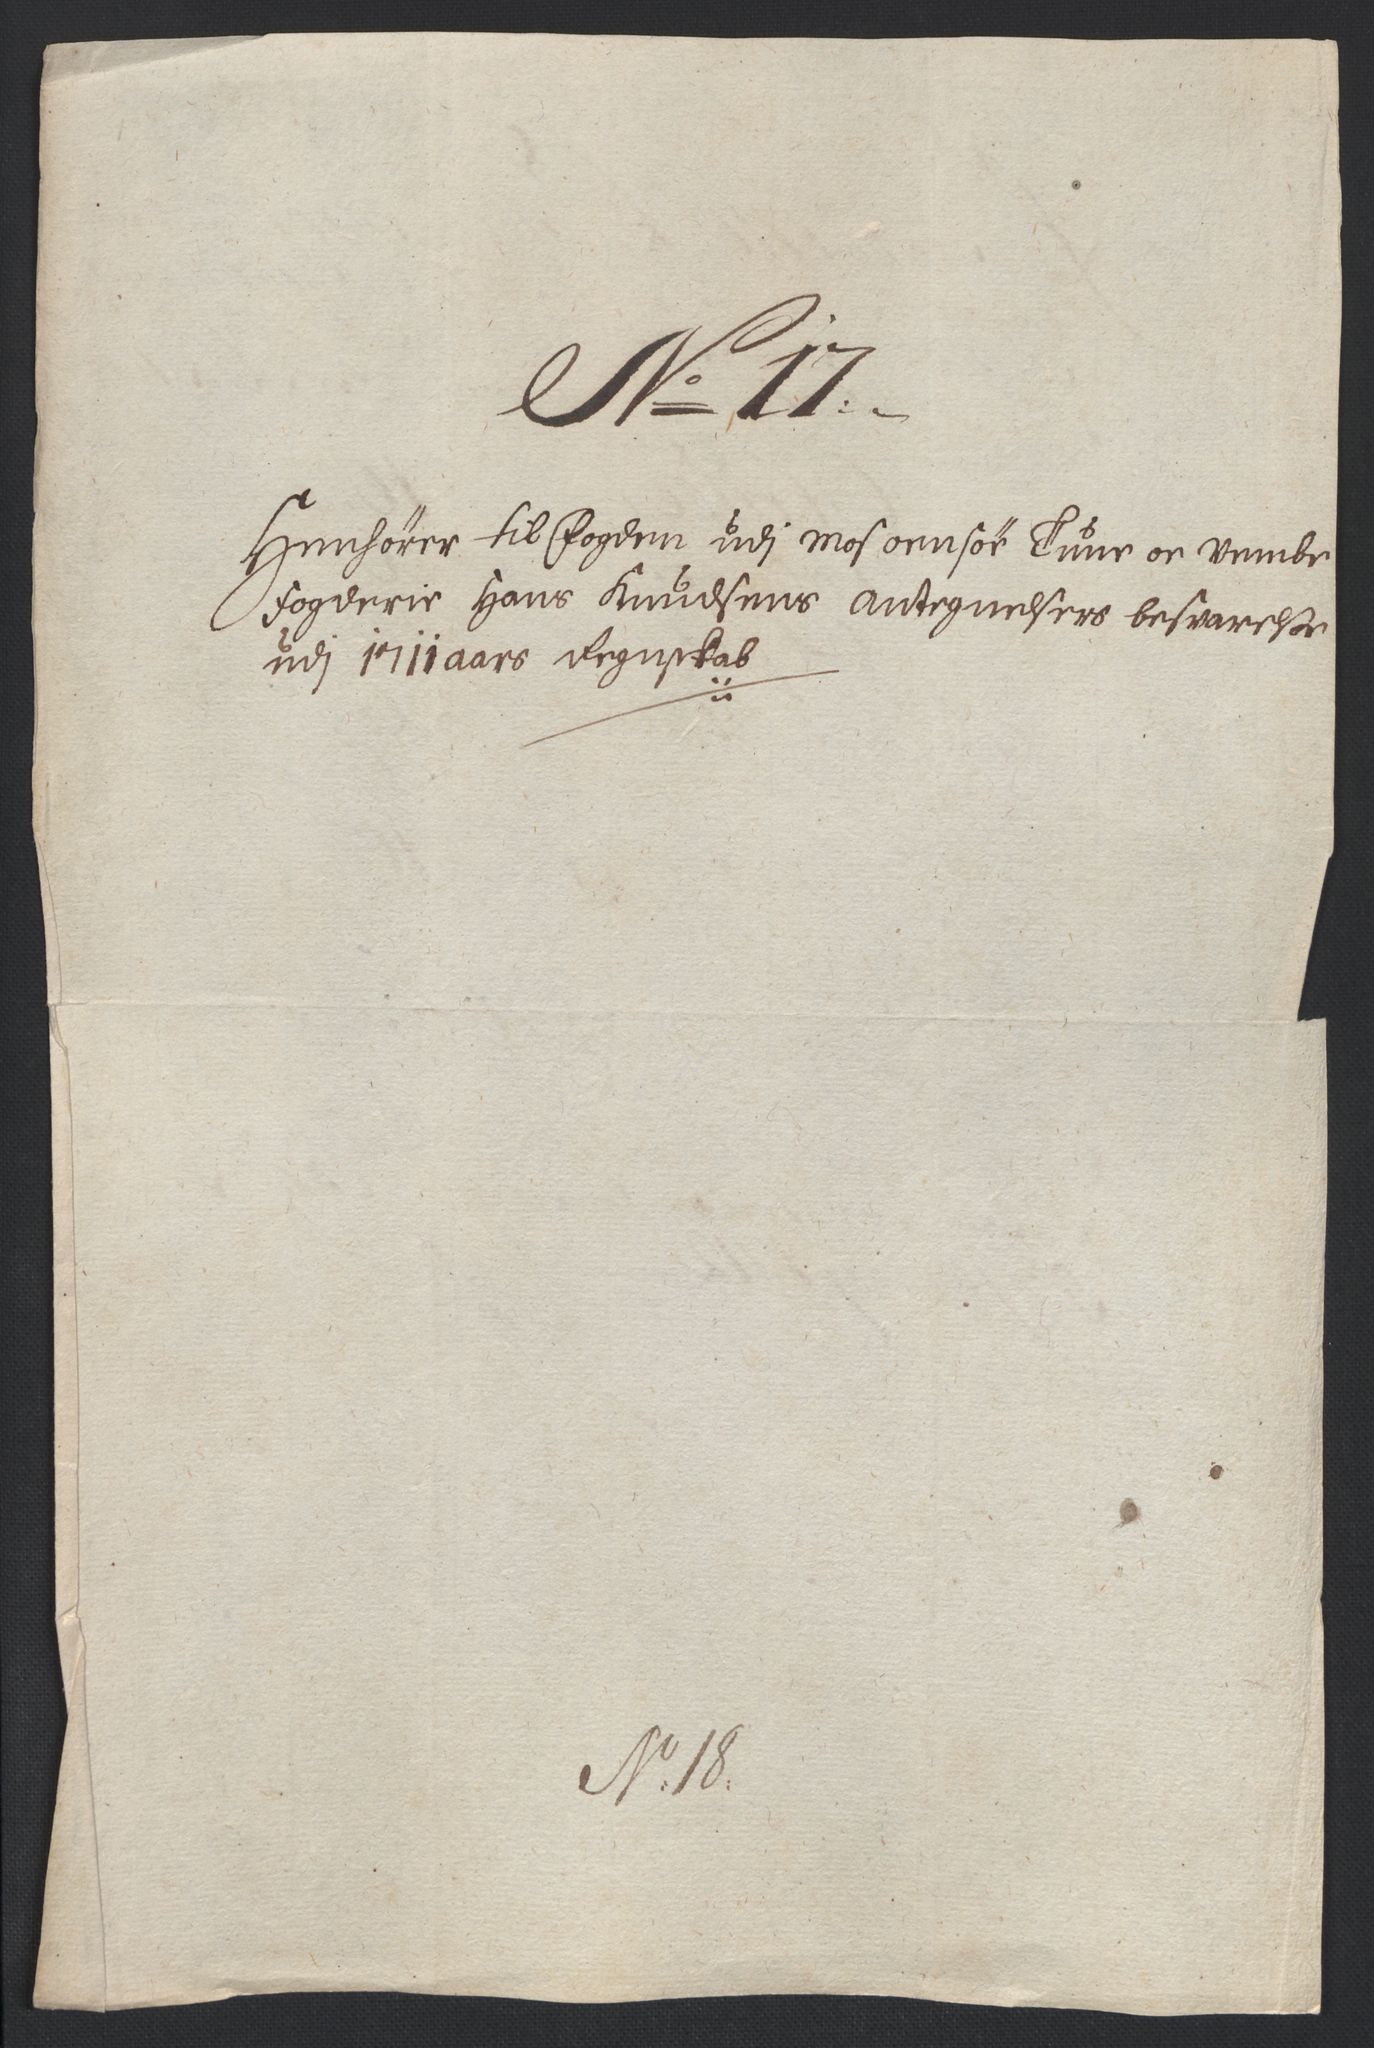 No 17.
Henhörer til Fogden udj Mos oensöe Tune oc Vembe
Fogderie Hans Knudsens Antegnelsers besvarelse
udj 1711 aars Regnskab
No. 18.